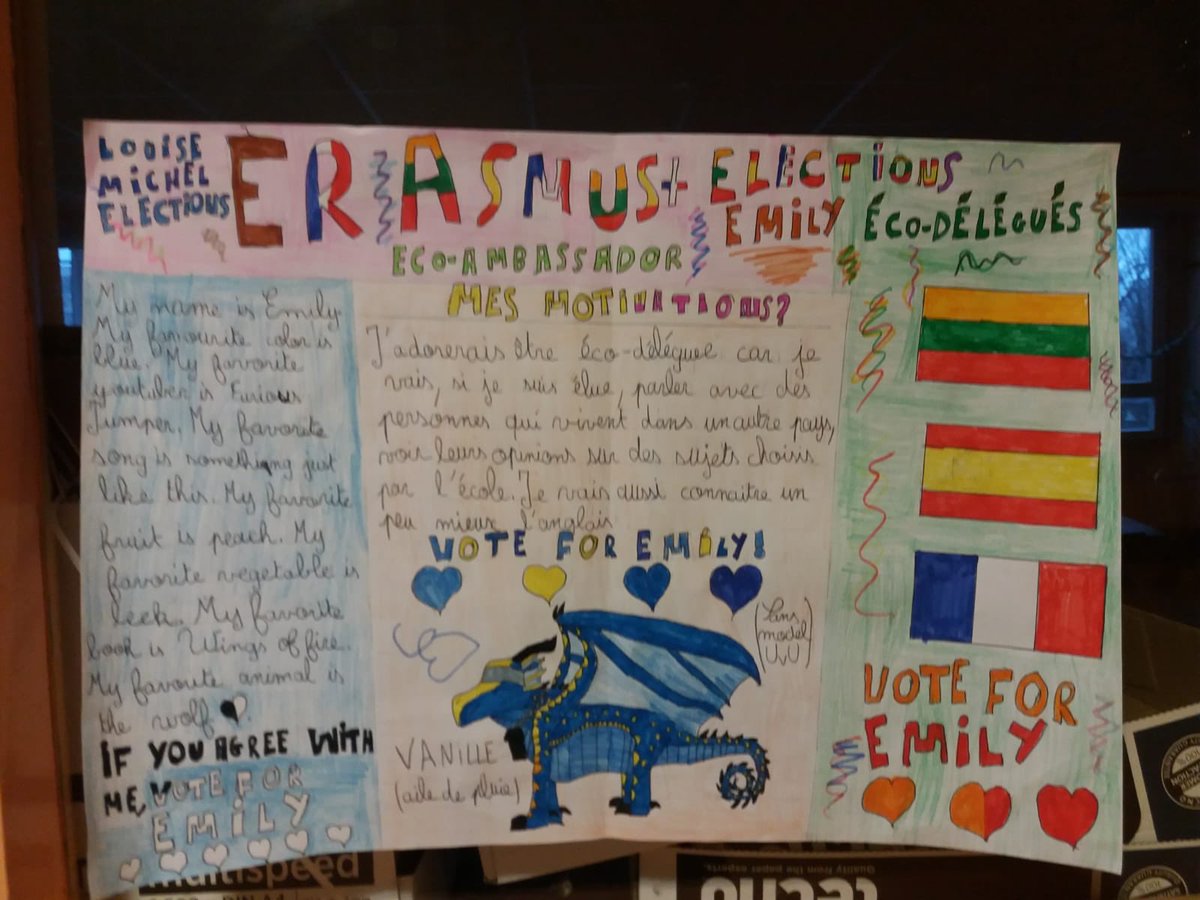 LOUISE
MICHEL
ELECTIOUS
ERASMUS+ ELECTIONS
EMILY
ECO-AMBASSADOR
ÉCO-DÉLÉGUÉS
My name is Emily
My favourite color is
blue. My favorite
youtuber is Furious
Jumper. My favorite
song is something just
like this. My favorite
fruit is peach. My
favorite vegetable is
leek. My favorite
book is Wings of fire.
My favorite animal is
the wolf.
IF YOU AGREE WITH
ME, VOTE FOR
EMILY
MES MOTIVATIONS?
J'adorerais être éco-déléguée car je
vais, si je suis élue, parler avec des
personnes qui vivent dans un autre pays,
voir leurs opinions sur des sujets choisis
par l'école. Je vais aussi connaitre un
peu mieux l'anglais
VOTE FOR EMILY!
(Sans
model
UvU)
VANILLE
(aile de pluie)
VOTE FOR
EMILY
multispeed
Quality from the paper experts.
tecno